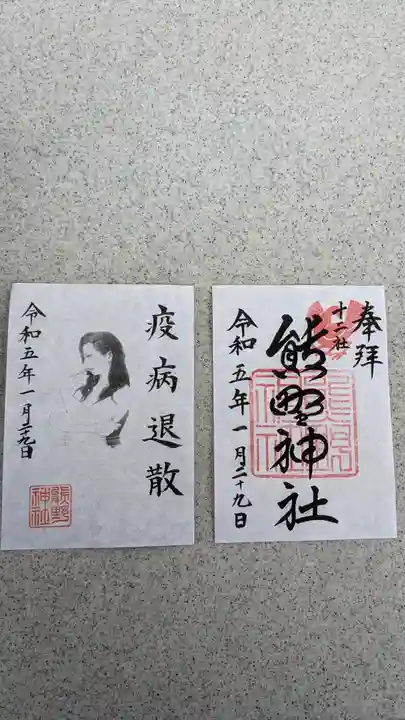 疫病退散
令和五年一月二十九日
熊野神社
奉拝
十二社
熊野神社
令和五年一月二十九日